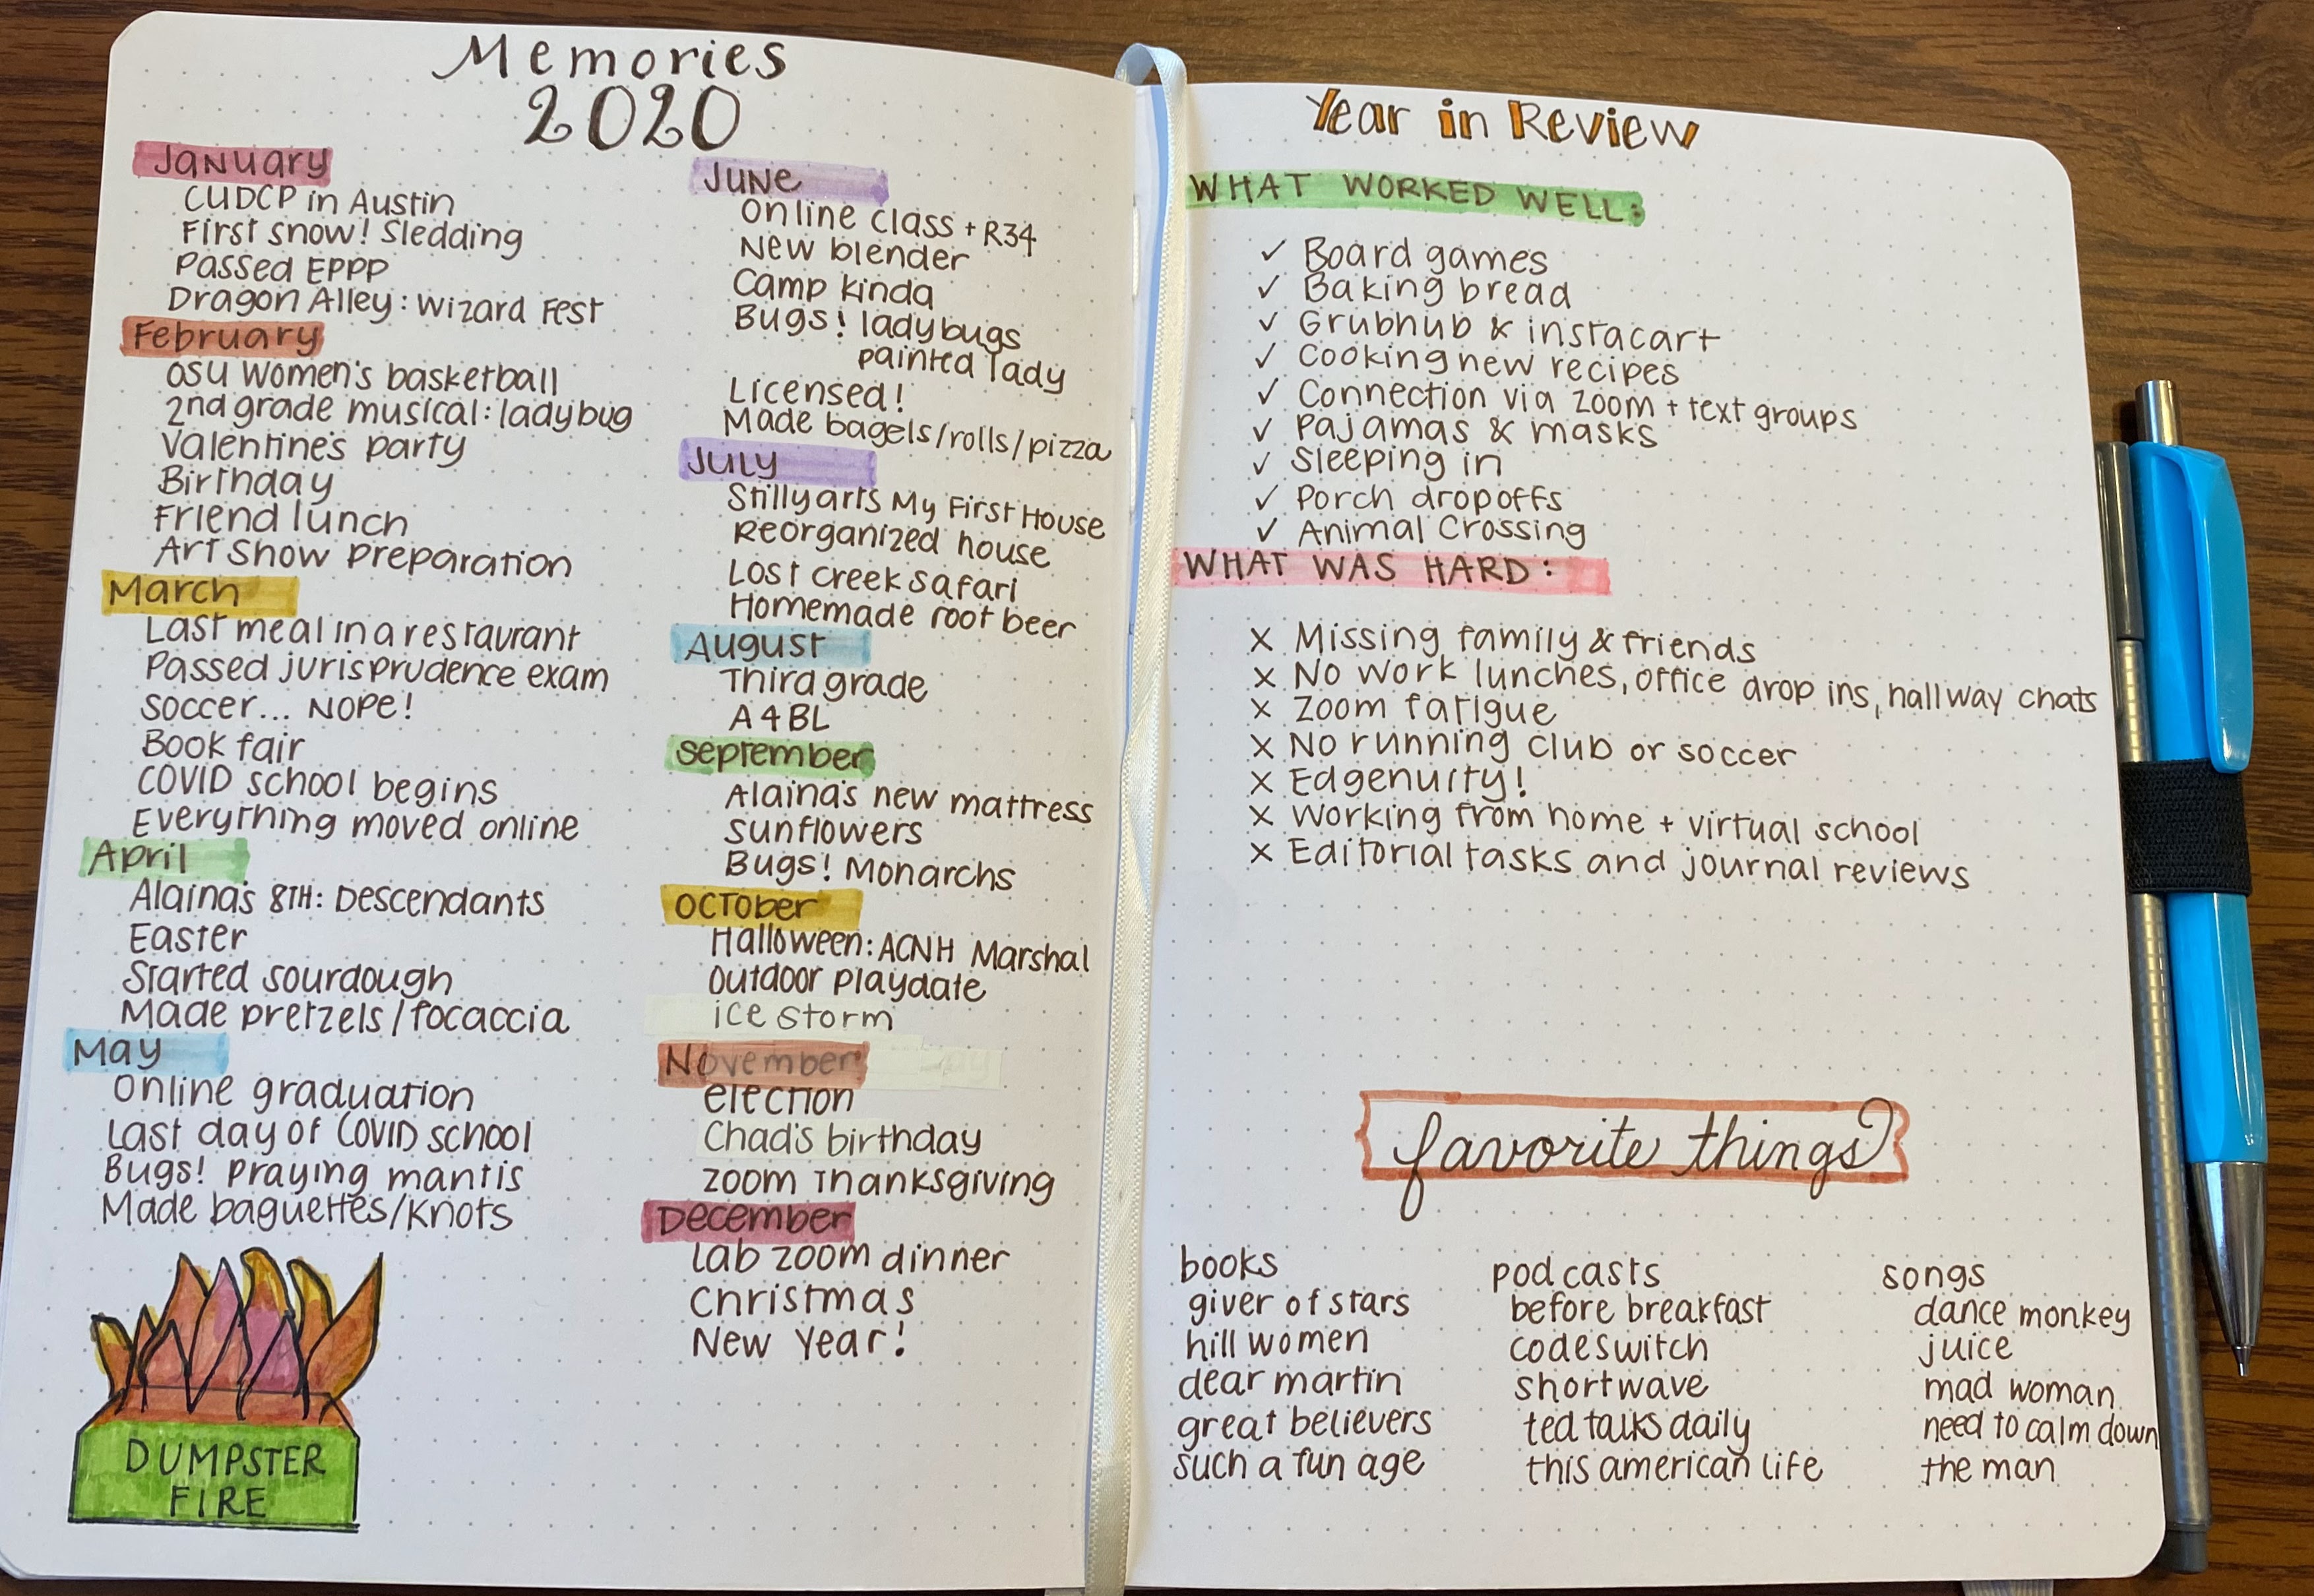 Memories
2020
January
CUDCP in Austin
First snow! Sledding
Passed EPPP
Dragon Alley: Wizard Fest
February
OSU Women's basketball
2nd grade musical: ladybug
Valentine's party
Birthday
Friend lunch
Art Show preparation
March
Last meal in a restaurant
Passed jurisprudence exam
Soccer... NOPE!
Book fair
COVID school begins
Everything moved online
April
Alaina's 8TH: Descendants
Easter
Started sourdough
Made pretzels/focaccia
May
Online graduation
Last day of COVID school
Bugs! Praying mantis
Made baguettes/knots
DUMPSTER
FIRE
June
Online class + R34
New blender
Camp kinda
Bugs! ladybugs
painted lady
Licensed!
Made bagels/rolls/pizza
July
Stillyarts My First House
Reorganized house
Lost creek safari
Homemade root beer
August
Third grade
A4BL
September
Alaina's new mattress
Sunflowers
Bugs! Monarchs
October
Halloween: ACNH Marshal
Outdoor playdate
ice storm
November
election
Chad's birthday
Zoom Thanksgiving
December
Lab zoom dinner
Christmas
New Year!
Year in Review
WHAT WORKED WELL:
✓ Board games
✓ Baking bread
✓ Grubhub & instacart
✓ Cooking new recipes
✓ Connection via zoom + text groups
✓ Pajamas & masks
✓ Sleeping in
✓ Porch dropoffs
✓ Animal Crossing
WHAT WAS HARD:
x Missing family & friends
x No work lunches, office drop ins, hallway chats
x Zoom fatigue
x No running club or soccer
x Edgenuity!
x Working from home + virtual school
x Editorial tasks and journal reviews
favorite things
books
giver of stars
hill women
dear martin
great believers
such a fun age
podcasts
before breakfast
codeswitch
shortwave
ted talks daily
this american life
songs
dance monkey
juice
mad woman
need to calm down
the man